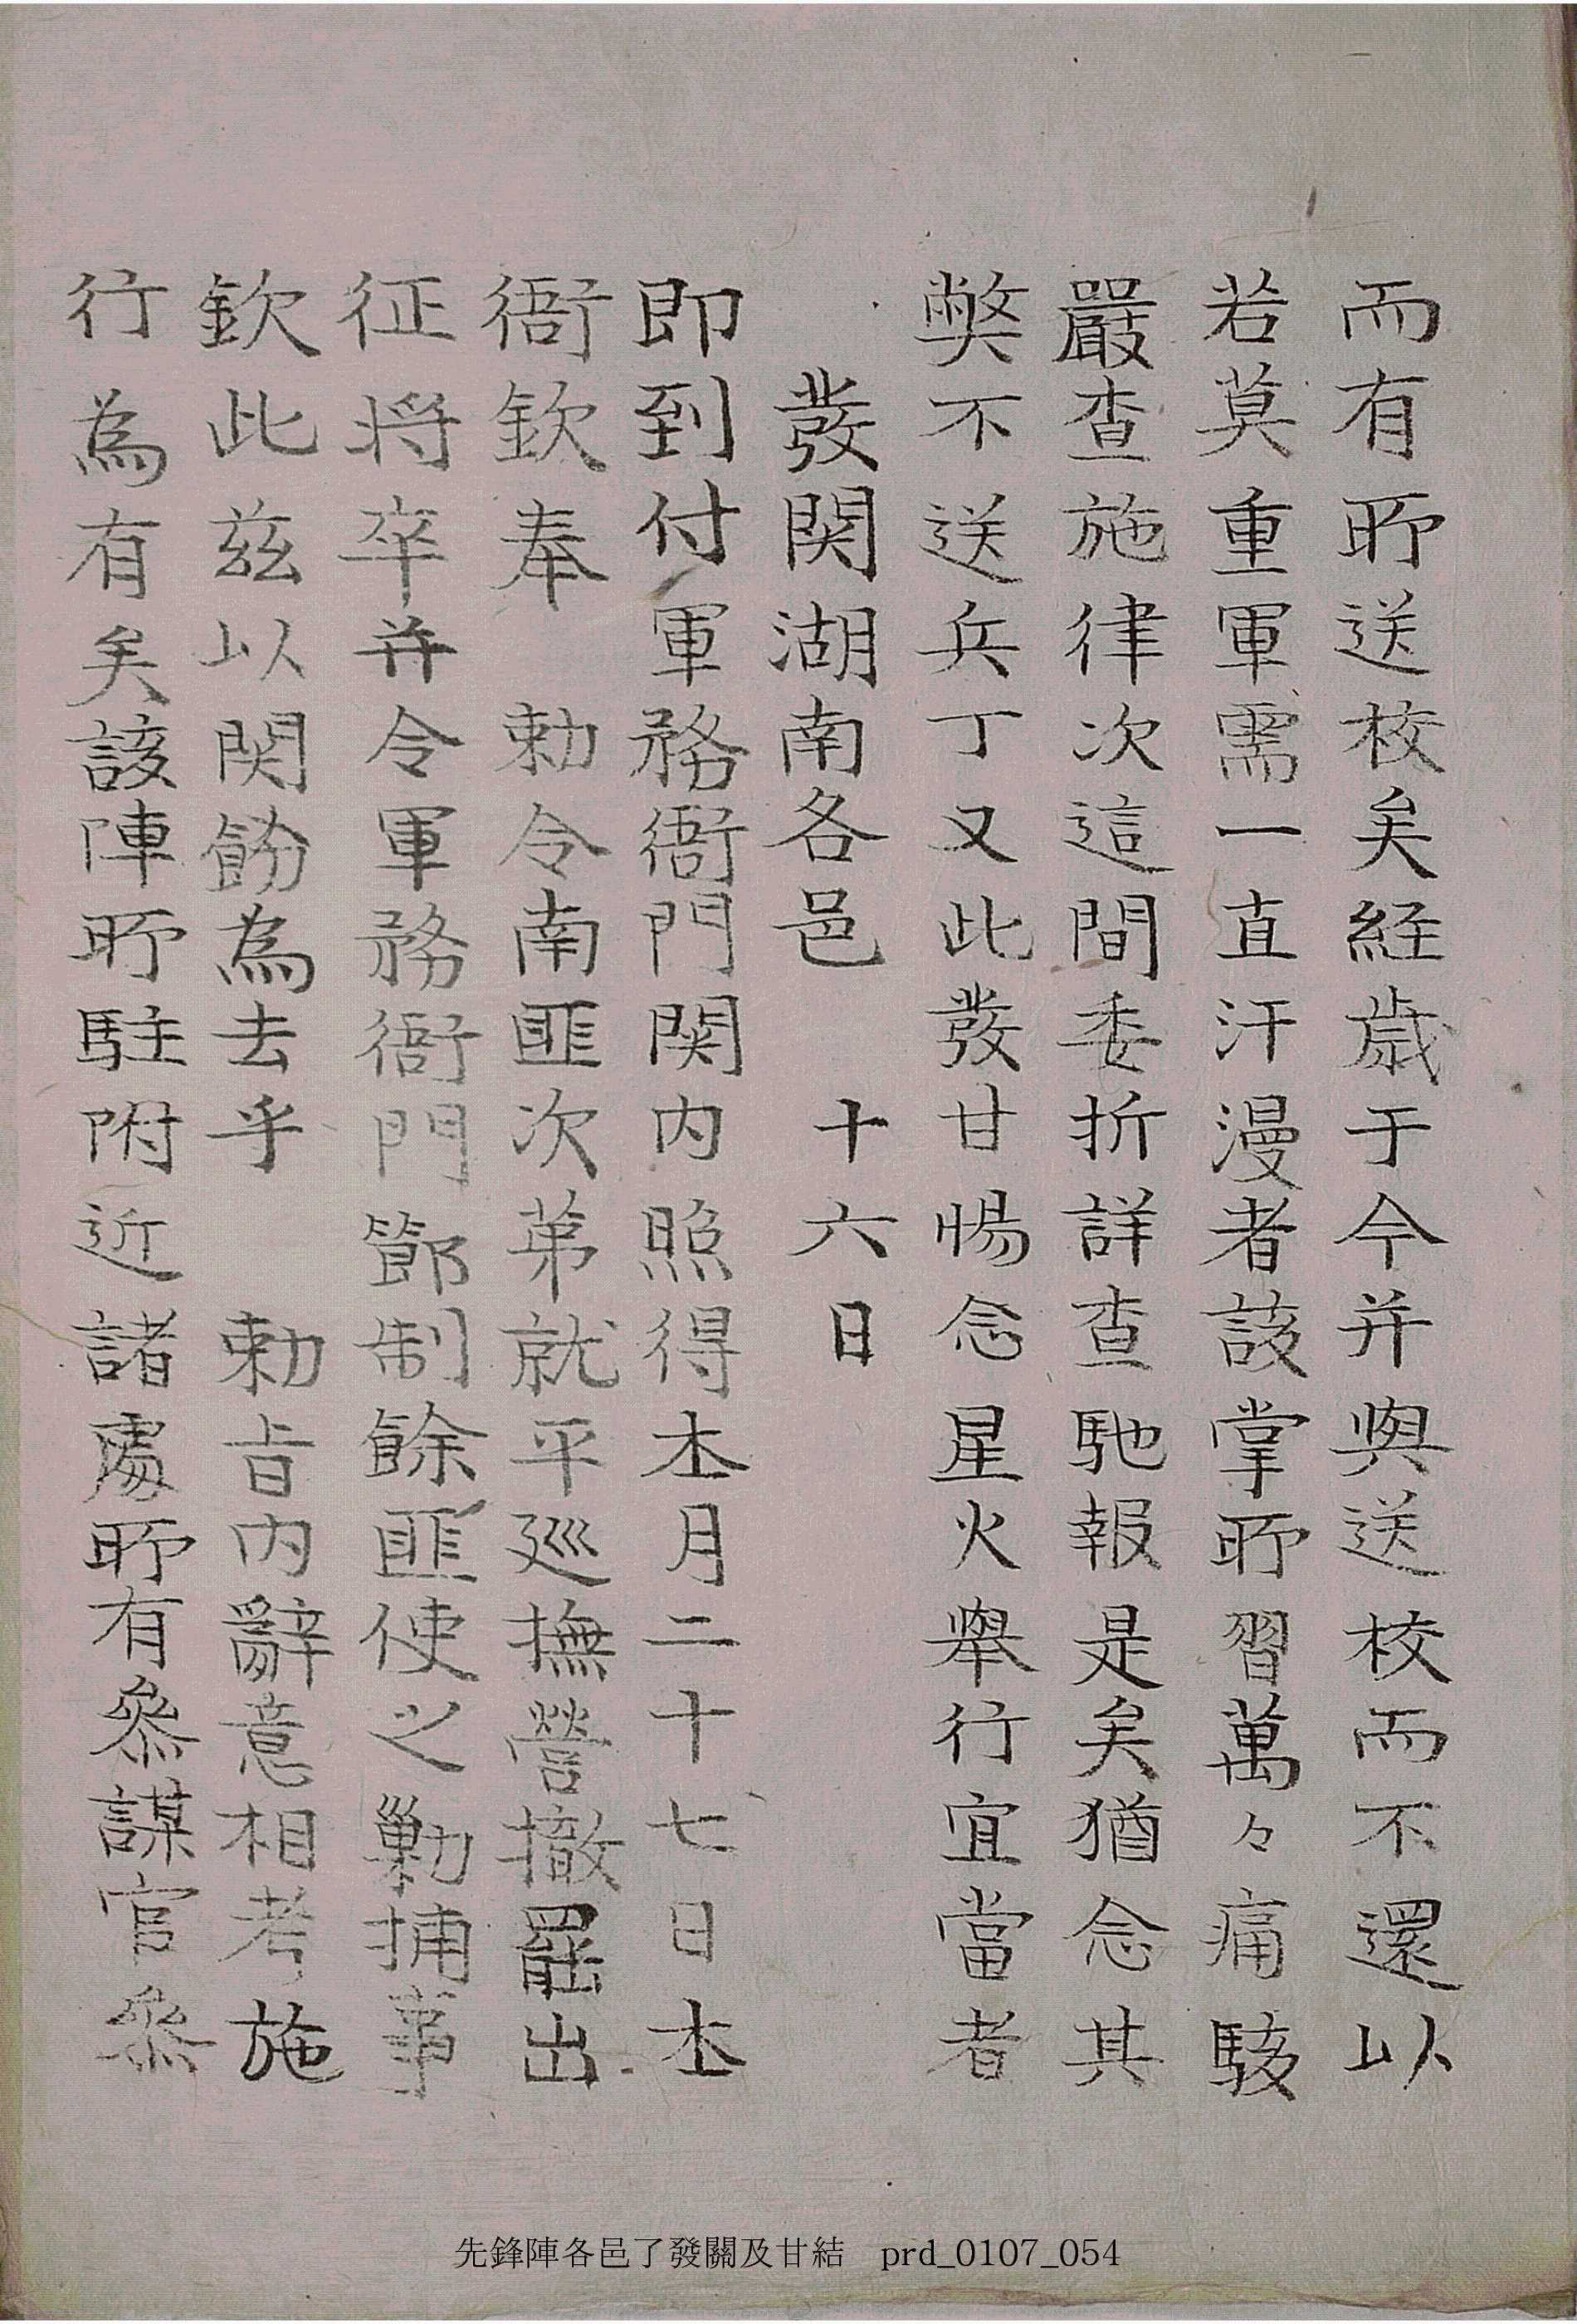 而有所送校矣經歲于今幷與送校而不還以
若莫重軍需一直汗漫者該掌所習萬々痛駭
嚴查施律次這間委折詳查馳報是矣猶念其
弊不送兵丁又此發甘惕念星火擧行宜當者
發関湖南各邑 十六日
即到付軍務衙門関內照得本月二十七日本
衙欽奉 勅令南匪次第就平巡撫營撤罷出
征將卒幷令軍務衙門節制餘匪使之勦捕事
欽此玆以関飭為去乎 勅旨內辭意相考施
行為有矣該陣所駐附近諸處所有叅謀官叅
先鋒陣各邑了發關及甘結 prd_0107_054